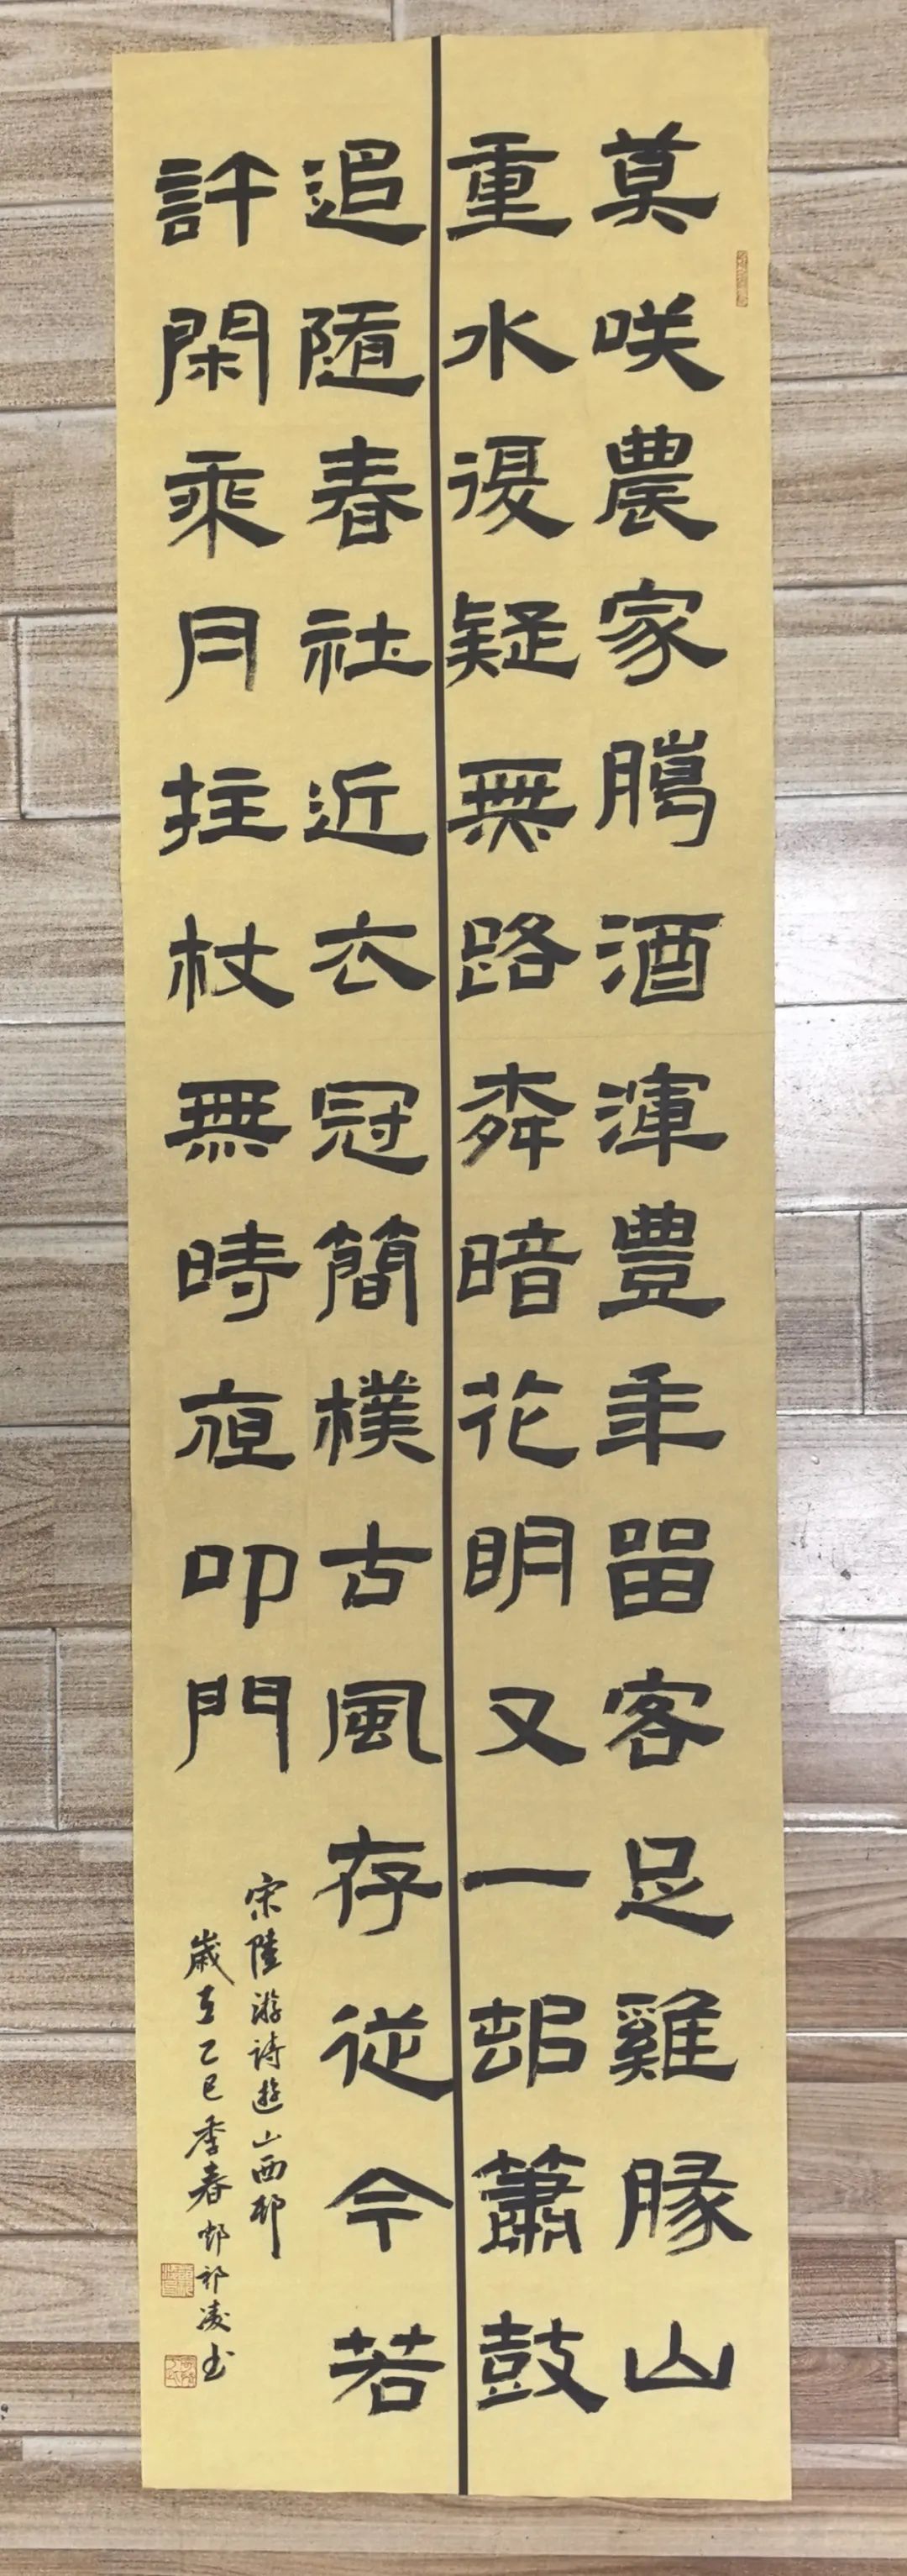 莫咲農家臈酒渾豊年留客足雞豚山
重水復疑無路桺暗花明又一邨簫鼓
追隨春社近衣冠簡樸古風存從今若
許閑乘月拄杖無時夜叩門
宋陸游詩遊山西邨
歲在乙巳季春鄭祁凌书